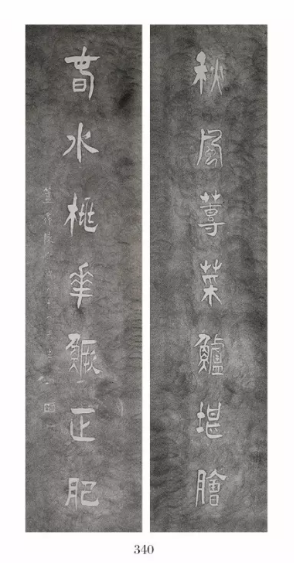 秋風蓴菜鱸堪膾
春水桃華鱖正肥
340